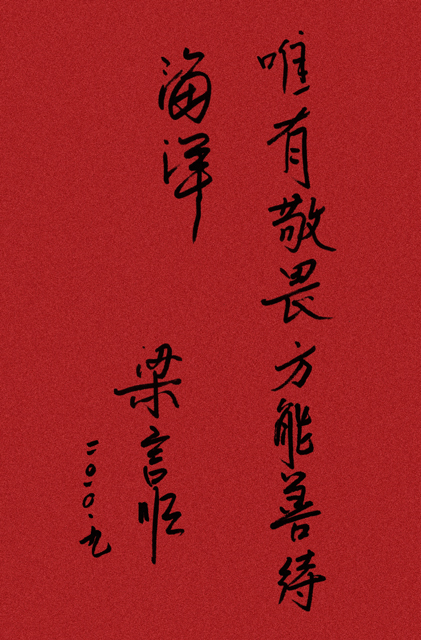 唯有敬畏方能善待
海洋
梁言顺
二〇一〇.九